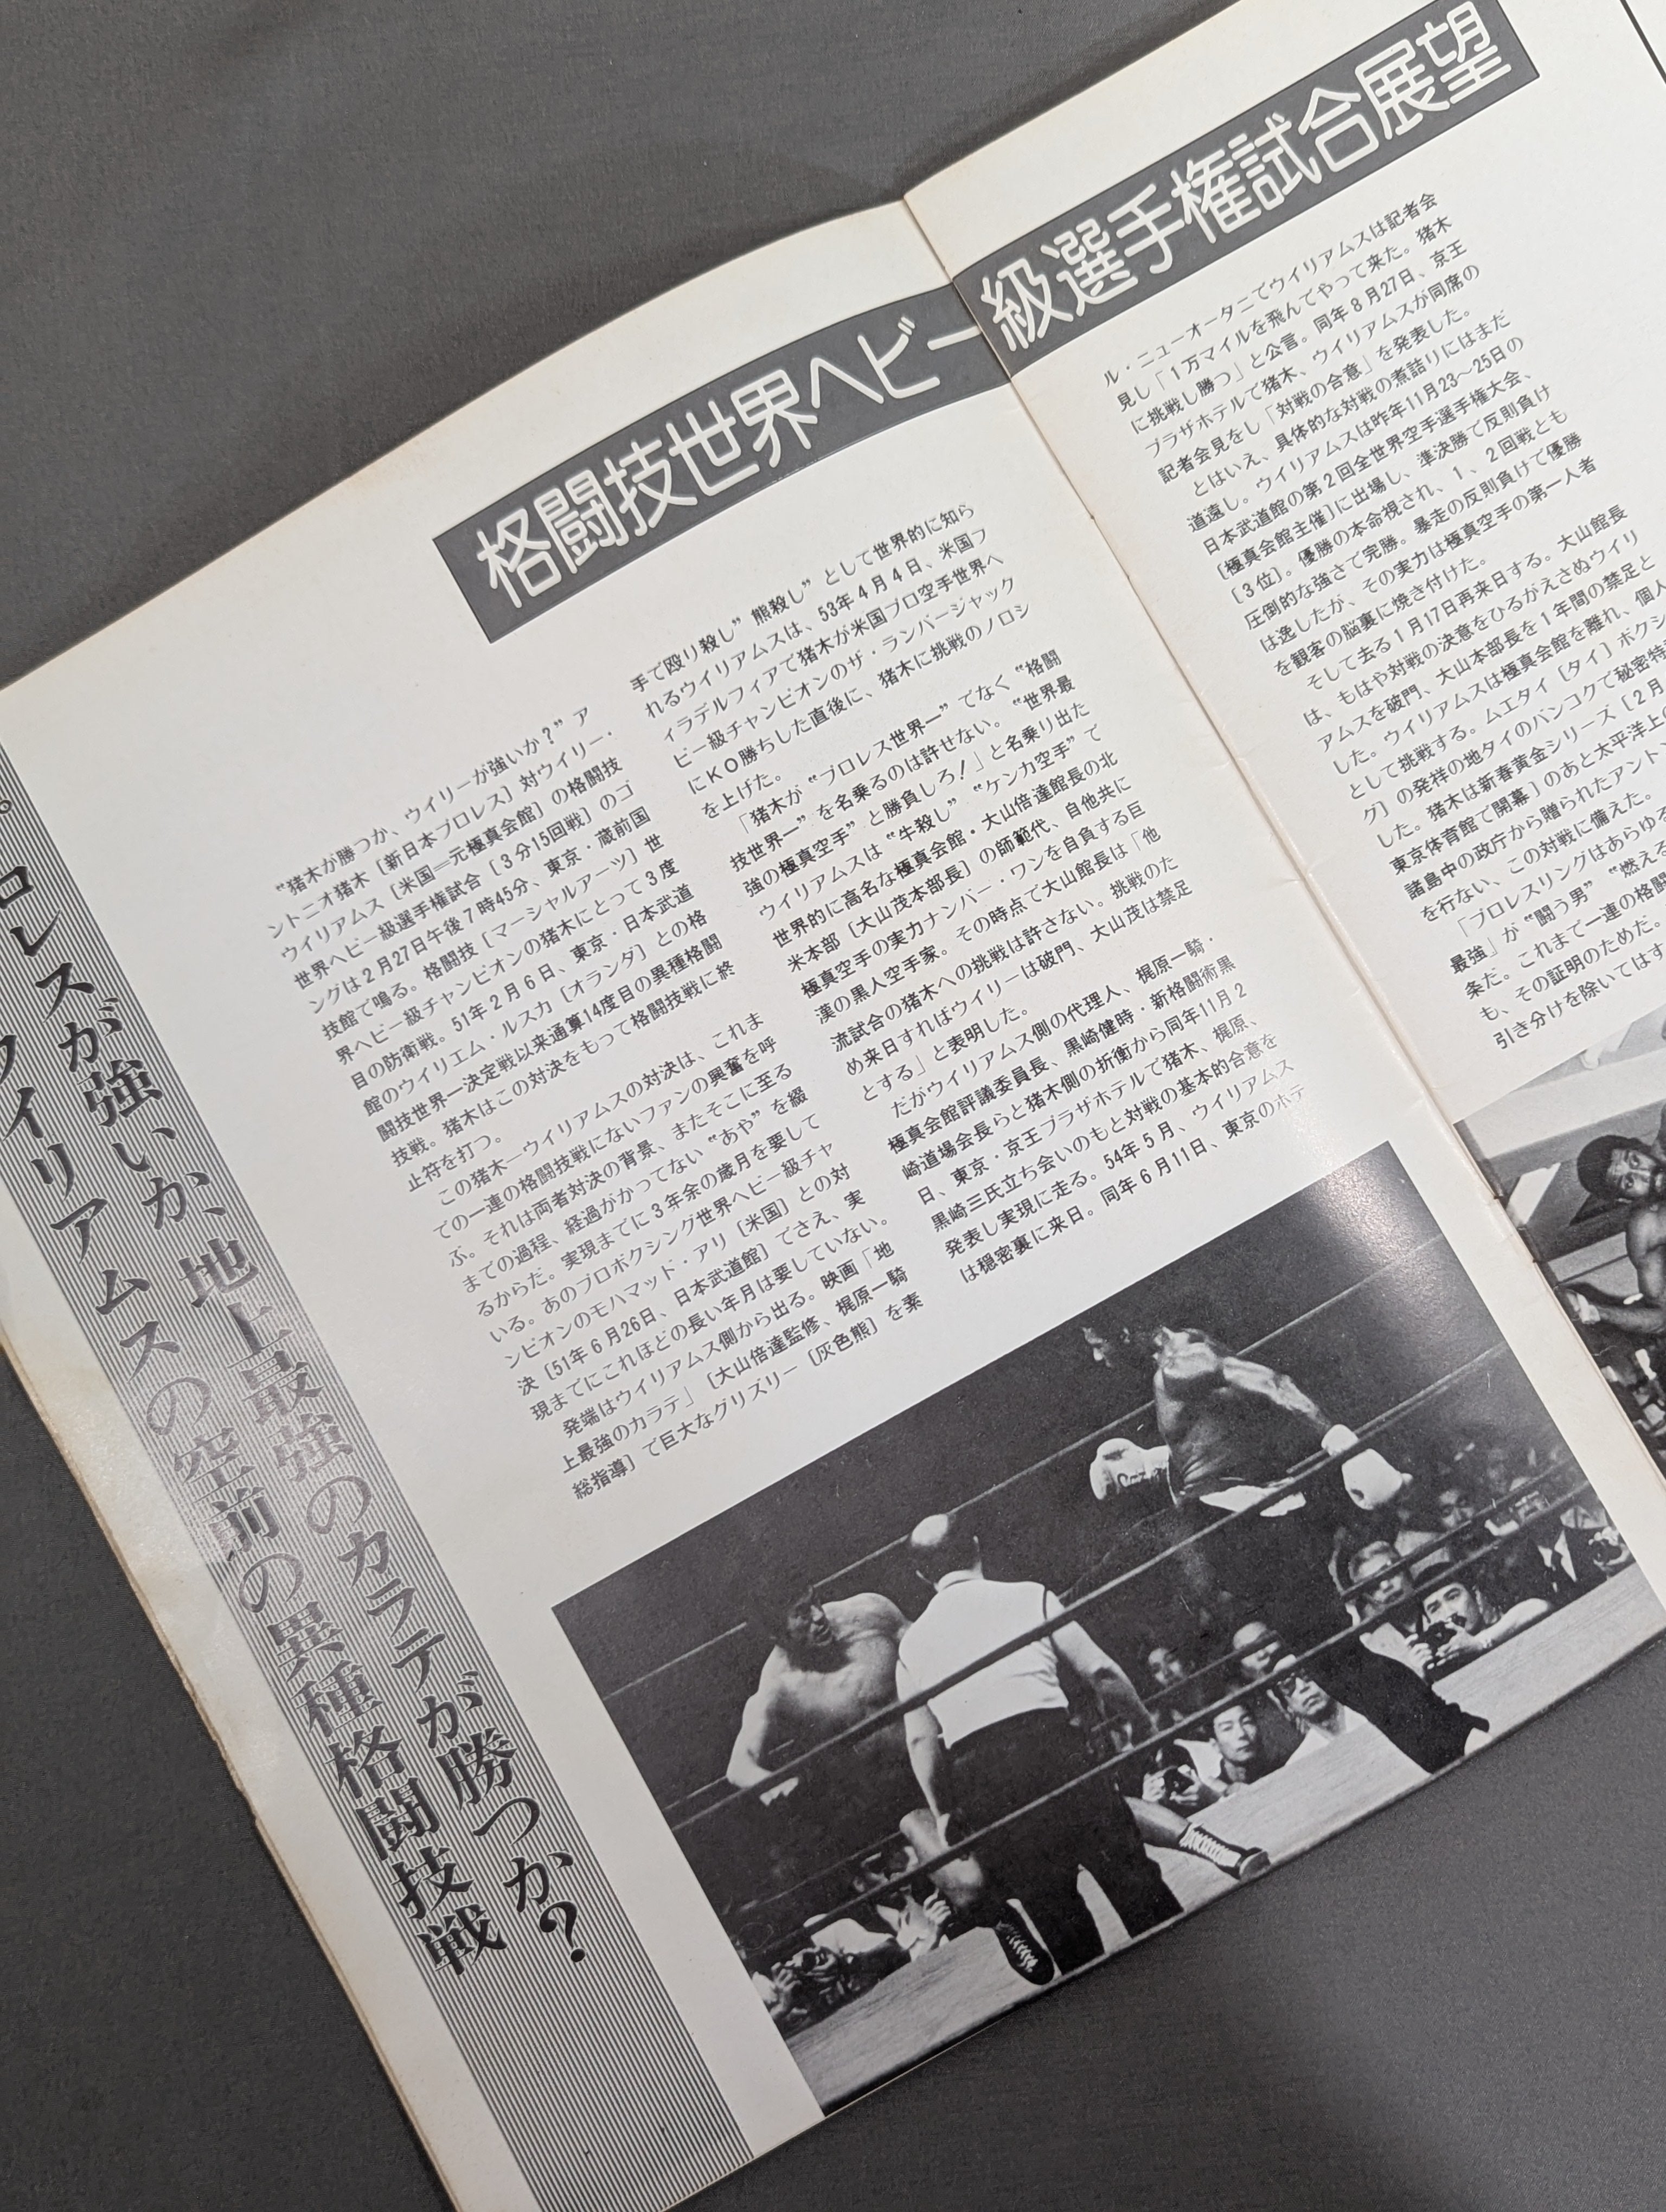 格闘技世界ヘビー級選手権試合展望
ロレスが強いか、地上最強のカラテが勝つか?
ウイリアムスの空前の異種格闘技戦
〝猪木が勝つか、ウイリーが強いか?〟ア
ントニオ猪木［新日本プロレス］対ウイリー・
ウイリアムス［米国＝元極真会館］の格闘技
世界ヘビー級選手権試合［3分15回戦］のゴ
ングは2月27日午後7時45分、東京・蔵前国
技館で鳴る。格闘技［マーシャルアーツ］世
界ヘビー級チャンピオンの猪木にとって3度
目の防衛戦。51年2月6日、東京・日本武道
館のウイリエム・ルスカ［オランダ］との格
闘技世界一決定戦以来通算14度目の異種格闘
技戦。猪木はこの対決をもって格闘技戦に終
止符を打つ。
この猪木ーウイリアムスの対決は、これま
での一連の格闘技戦にないファンの興奮を呼
ぶ。それは両者対決の背景、またそこに至る
までの過程、経過がかつてない〝あや〟を綴
るからだ。実現までに3年余の歳月を要して
いる。あのプロボクシング世界ヘビー級チャ
ンピオンのモハマット・アリ［米国］との対
決［51年6月26日、日本武道館］でさえ、実
現までにこれほどの長い年月は要していない。
発端はウイリアムス側から出る。映画「地
上最強のカラテ」［大山倍達監修、梶原一騎
総指導］で巨大なグリズリー［灰色熊］を素
手で殴り殺し〟熊殺し〟として世界的に知ら
れるウイリアムスは、53年4月4日、米国フ
ィラデルフィアで猪木が米国プロ空手世界ヘ
ビー級チャンピオンのザ・ランバージャック
にKO勝ちした直後に、猪木に挑戦のノロシ
を上げた。
「猪木が〝プロレス世界一〟でなく〝格闘
技世界一〟を名乗るのは許せない。〝世界最
強の極真空手〟と勝負しろ!」と名乗り出た
ウイリアムスは〝牛殺し〟〝ケンカ空手〟て
世界的に高名な極真会館・大山倍達館長の北
米本部［大山茂本部長］の師範代、自他共に
極真空手の実力ナンバー・ワンを自負する巨
漢の黒人空手家。その時点で大山館長は「他
流試合の猪木への挑戦は許さない。挑戦のた
め来日すればウイリーは破門、大山茂は禁足
とする」と表明した。
だがウイリアムス側の代理人、梶原一騎・
極真会館評議委員長、黒崎健時・新格闘術黒
崎道場会長らと猪木側の折衡から同年11月2
日、東京・京王プラザホテルで猪木、梶原、
黒崎三氏立ち会いのもと対戦の基本的合意を
発表し実現に走る。54年5月、ウイリアムス
は穏密裏に来日。同年6月11日、東京のホテ
ル・ニューオータニでウイリアムスは記者会
見し「1万マイルを飛んでやって来た。猪木
に挑戦し勝つ」と公言。同年8月27日、京王
プラザホテルで猪木、ウイリアムスが同席の
記者会見をし「対戦の合意」を発表した。
とはいえ、具体的な対戦の煮詰りにはまだ
道遠し。ウイリアムスは昨年11月23〜25日の
日本武道館の第2回全世界空手選手権大会、
［極真会館主催］に出場し、準決勝で反則負け
［3位］。優勝の本命視され、1、2回戦とも
圧倒的な強さで完勝。暴走の反則負けで優勝
は逸したが、その実力は極真空手の第一人者
を観客の脳裏に焼き付けた。
そして去る1月17日再来日する。大山館長
は、もはや対戦の決意をひるがえさぬウイリ
アムスを破門、大山本部長を1年間の禁足と
した。ウイリアムスは極真会館を離れ、個人
として挑戦する。ムエタイ［タイ］ボクシ
グ］の発祥の地タイのバンコクで秘密特
した。猪木は新春黄金シリーズ［2月
東京体育館で開幕］のあと太平洋上の
諸島中の政庁から贈られたアントン
を行ない、この対戦に備えた。
「プロレスリングはあらゆる
最強」が〝闘う男〟〝燃える
条だ。これまで一連の格闘
も、その証明のためだ。
引き分けを除いてはす